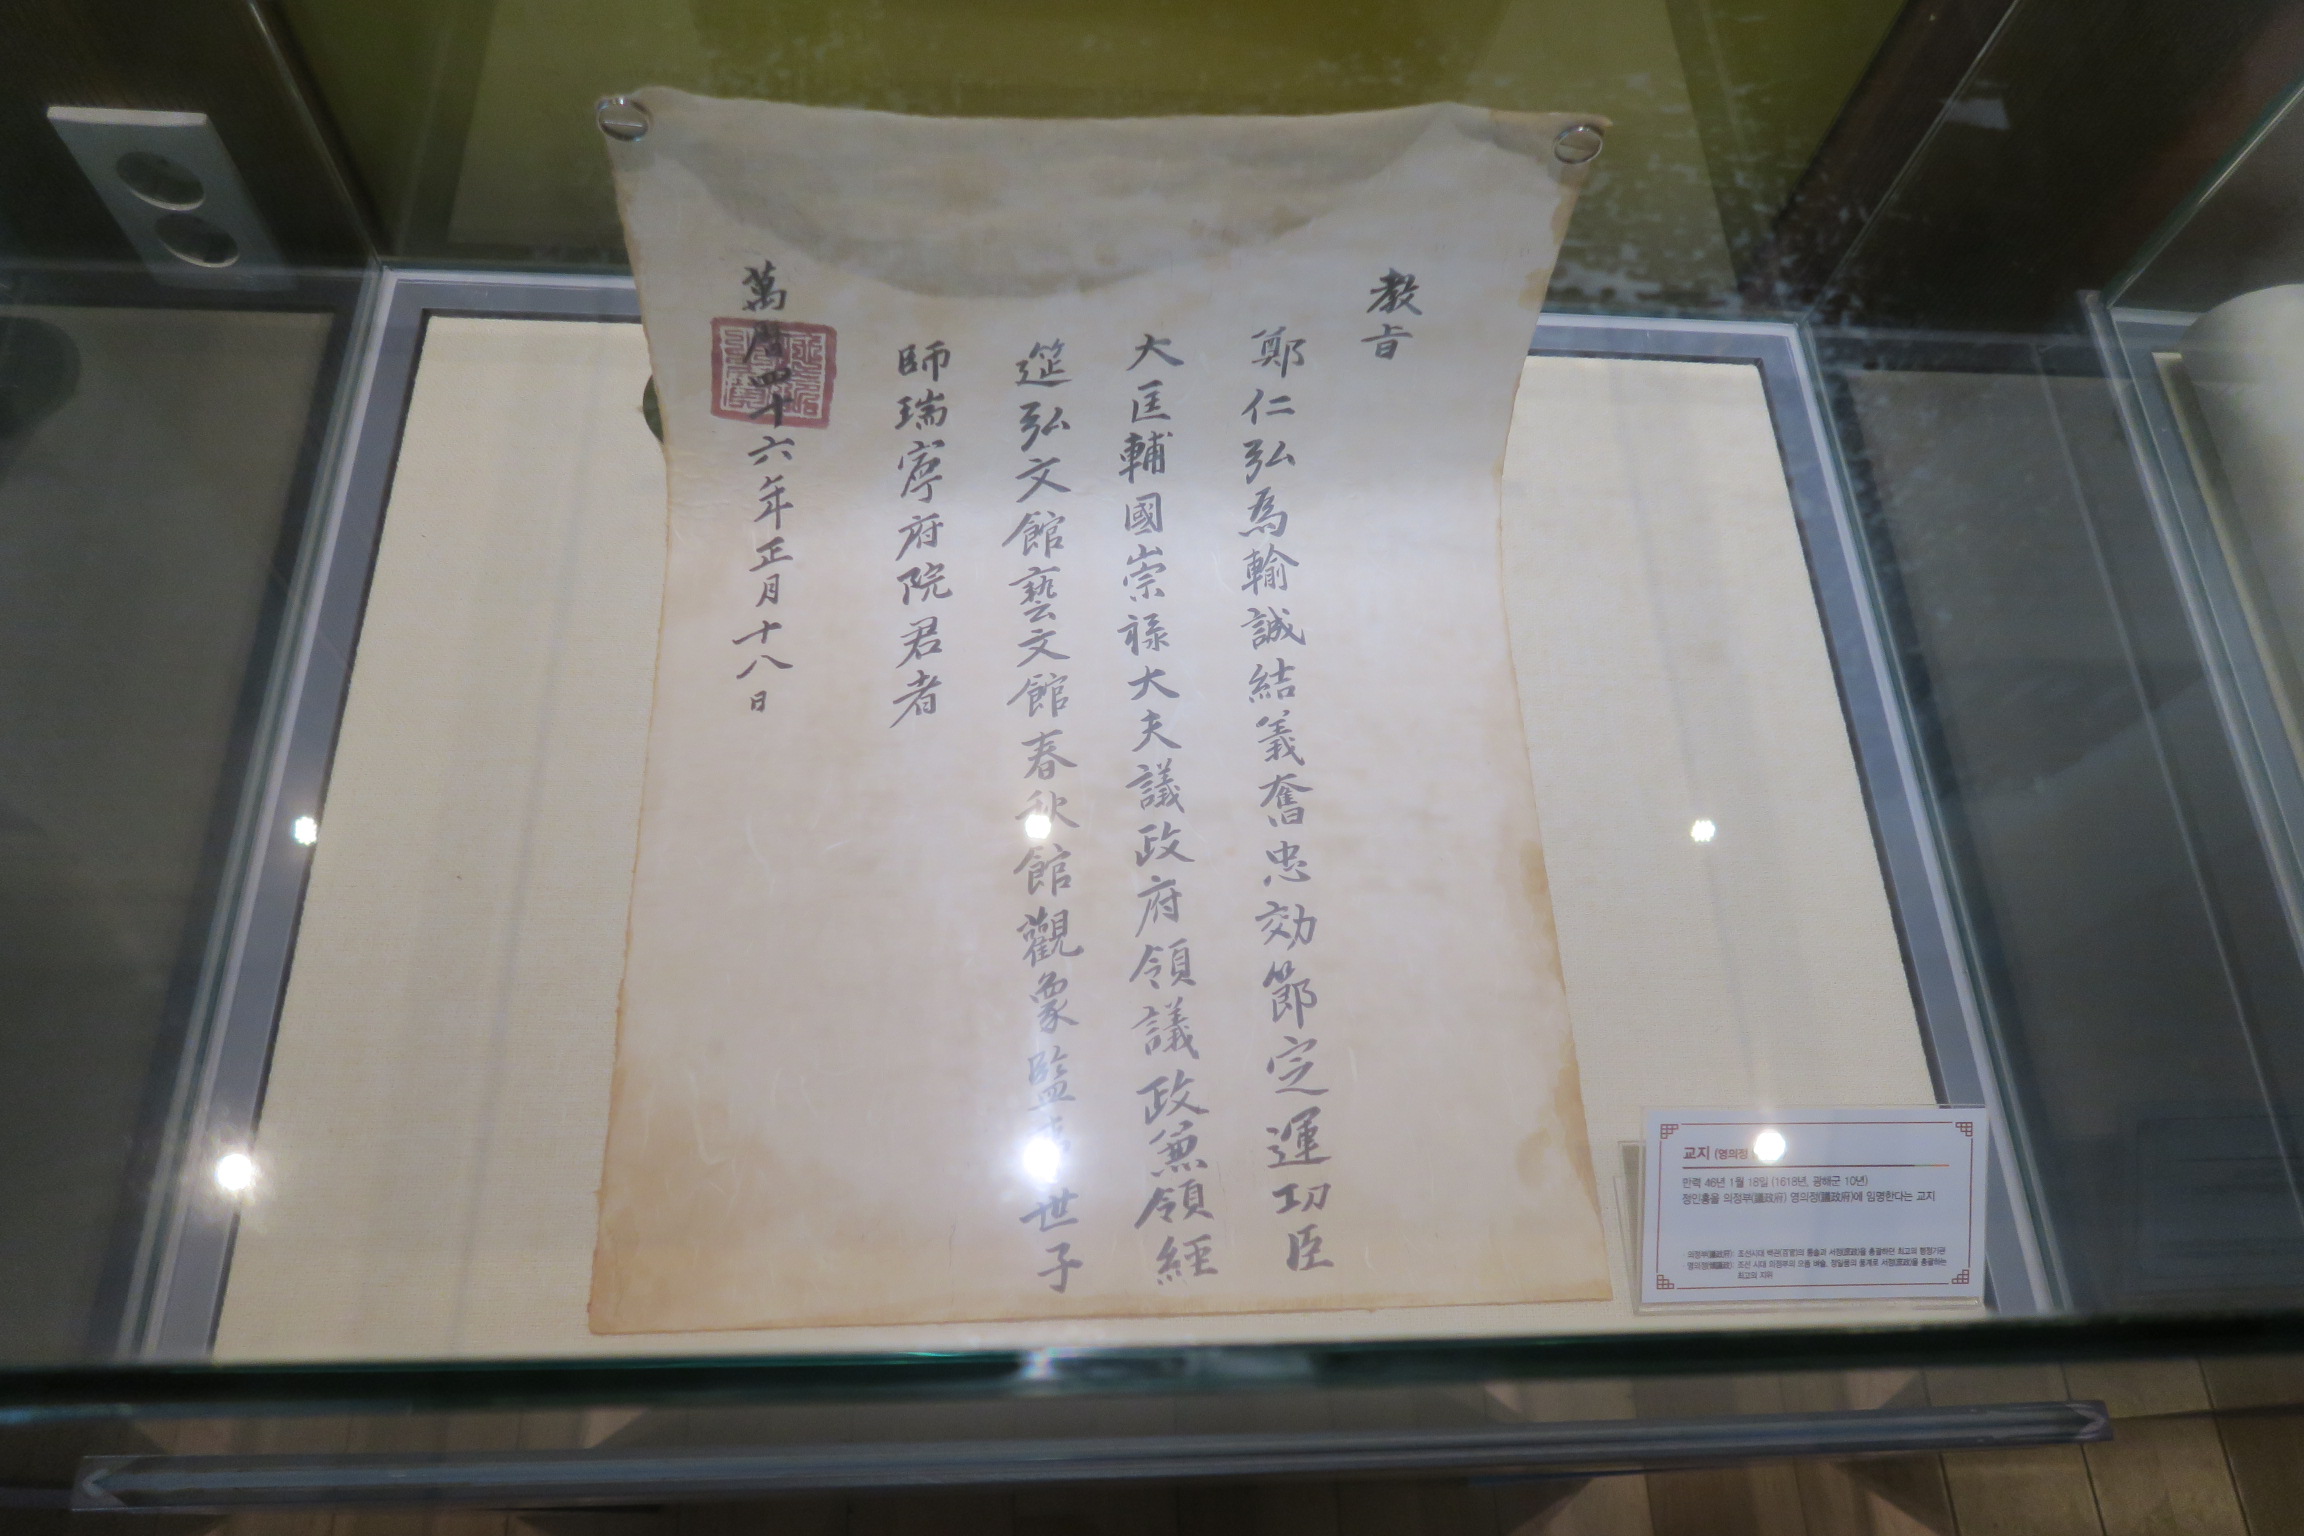 教旨
鄭仁弘為輸誠結義奮忠効節定運功臣
大匡輔國崇祿大夫議政府領議政兼領經
筵弘文館藝文館春秋館觀象監事世子
師瑞寧府院君者
萬曆四十六年正月十八日
교지 (영의정
만력 46년 1월 18일 (1618년, 광해군 10년)
정인홍을 의정부(議政府) 영의정(議政府)에 임명한다는 교지
의정부(議政府): 조선시대 백관(百官)의 통솔과 서정(庶政)을 총괄하던 최고의 행정기관
영의정(領議政): 조선 시대 의정부의 으뜸 벼슬. 정일품의 품계로 서정(庶政)을 총괄하는
최고의 지위